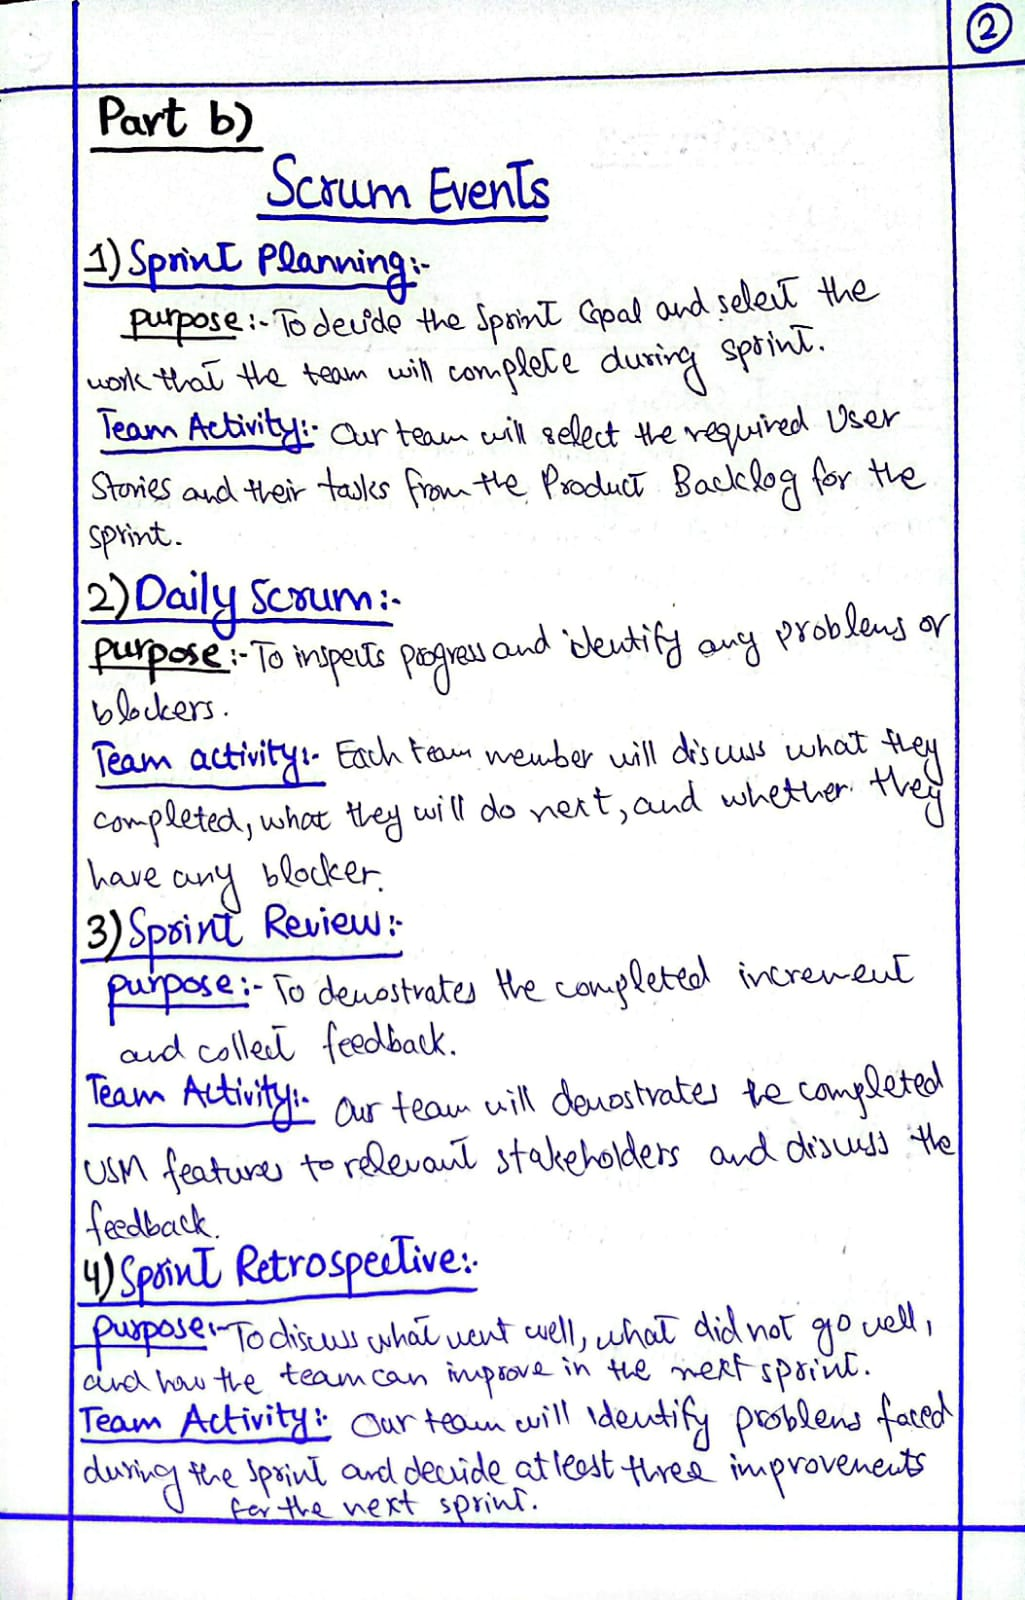 2
Part b)
Scrum Events
1) Sprint Planning:-
purpose:- To decide the Sprint Goal and select the
work that the team will complete during sprint.
Team Activity:- Our team will select the required User
Stories and their tasks from the Product Backlog for the
sprint.
2) Daily Scrum:-
purpose:- To inspects progress and identify any problems or
blockers.
Team activity:- Each team member will discuss what they
completed, what they will do next, and whether they
have any blocker.
3) Sprint Review:-
purpose:- To demostrates the completed increment
and collect feedback.
Team Activity:- Our team will demostrates the completed
USM features to relevant stakeholders and discuss the
feedback.
4) Sprint Retrospective:-
purpose:- To discuss what went well, what did not go well,
and how the team can improve in the next sprint.
Team Activity:- Our team will identify problems faced
during the Sprint and decide at least three improvements
for the next sprint.